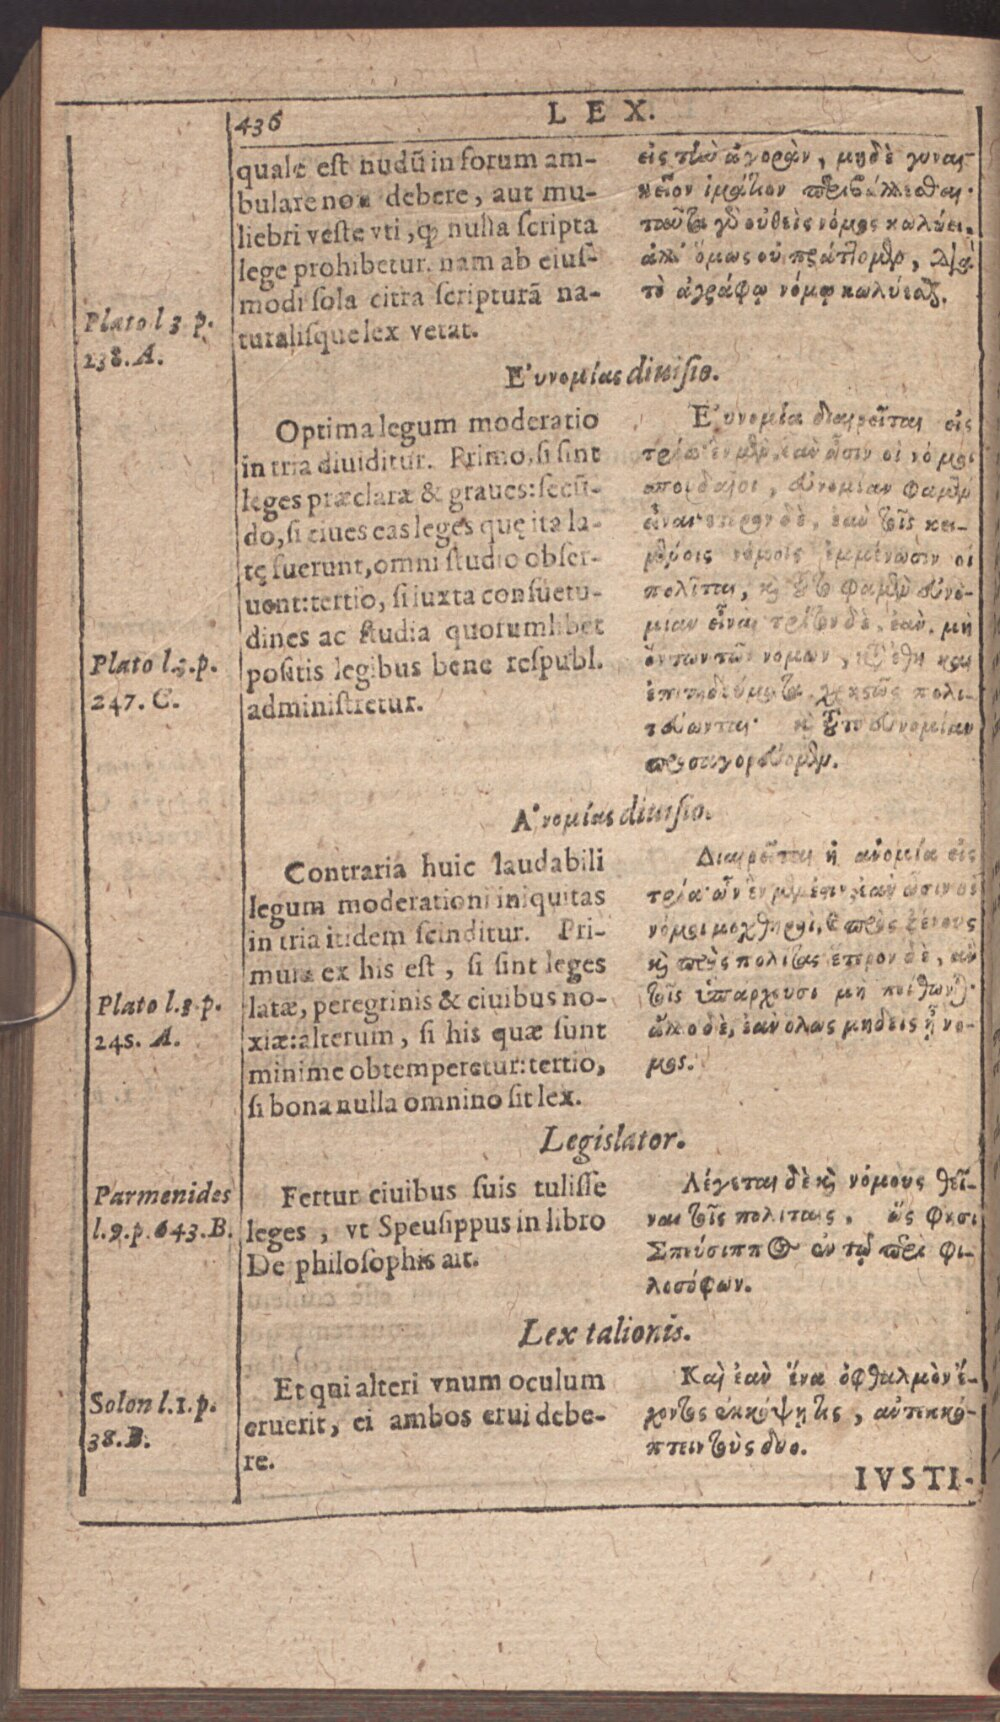 436
LEX.
quale est nudũ in forum am-
bulare non debere, aut mu-
liebri veste vti, ꝙ nulla scripta
lege prohibetur. nam ab eius-
modi sola citra scripturã na-
turalisque lex vetat.
εἰς τὴν ἀγορὰν, μηδὲ γυναι-
κεῖον ἱμάτιον περιβάλλεσθαι·
ταῦτα γὸ οὐθεὶς νόμος κωλύει.
ἀλλ' ὅμως οὐ πράττομεν, διὰ
τὸ ἀγράφῳ νόμῳ κωλύεσθ.
Plato l 3 p.
238. A.
Ε'υνομίας diuisio.
Optima legum moderatio
in tria diuiditur. Primo, si sint
leges præclaræ & graues: secũ-
do, si ciues eas leges quę ita la-
tę fuerunt, omni studio obser-
uent: tertio, si iuxta consuetu-
dines ac studia quorumlibet
positis legibus bene respubl.
administretur.
Ε'υνομία διαιρεῖται εἰς
τρία· ἓν μὲν, ἐὰν ὦσιν οἱ νόμοι
σπουδαῖοι, εὐνομίαν φαμὲν
εἶναι· ἕτερον δὲ, ἐὰν τοῖς κει-
μένοις νόμοις ἐμμένωσιν οἱ
πολῖται, καὶ τοῦτο φαμὲν εὐνο-
μίαν εἶναι τρίτον δὲ, ἐὰν. μὴ
ὄντων τῶν νόμων, κατ' ἔθη και
ἐπιτηδεύματα χρηστῶς πολι-
τεύωνται· καὶ τοῦτο εὐνομίαν
προσαγορεύομεν.
Plato l.3.p.
247. C.
Α'νομίας diuisio.
Contraria huic laudabili
legum moderationi iniquitas
in tria itidem scinditur. Pri-
mum ex his est, si sint leges
latæ, peregrinis & ciuibus no-
xiæ: alterum, si his quæ sunt
minime obtemperetur: tertio,
si bona nulla omnino sit lex.
Διαιρεῖται ἡ ἀνομία εἰς
τρία· ὧν ἓν μὲν ἐστιν, ἐὰν ὦσιν οἱ
νόμοι μοχθηροὶ, καὶ πρὸς ξένους
καὶ πρὸς πολίτας ἕτερον δὲ, ἐὰν
τοῖς ὑπάρχουσι μὴ πείθωνται·
ἄλλο δὲ, ἐὰν ὅλως μηδεὶς ᾖ νό-
μος.
Plato l.3.p.
245. A.
Legislator.
Fertur ciuibus suis tulisse
leges, vt Speusippus in libro
De philosophis ait.
Λέγεται δὲ καὶ νόμους θεῖ-
ναι τοῖς πολίταις, ὥς φησι
Σπεύσιππος ἐν τῷ περὶ φι-
λοσόφων.
Parmenides
l.9.p.643.B.
Lex talionis.
Et qui alteri vnum oculum
eruerit, ei ambos erui debe-
re.
Καὶ ἐὰν ἕνα ὀφθαλμὸν ἔ-
χοντος ἐκκόψῃ τις, αὐτεκκό-
πτειν τοὺς δυο.
Solon l.1.p.
38.B.
IVSTI-